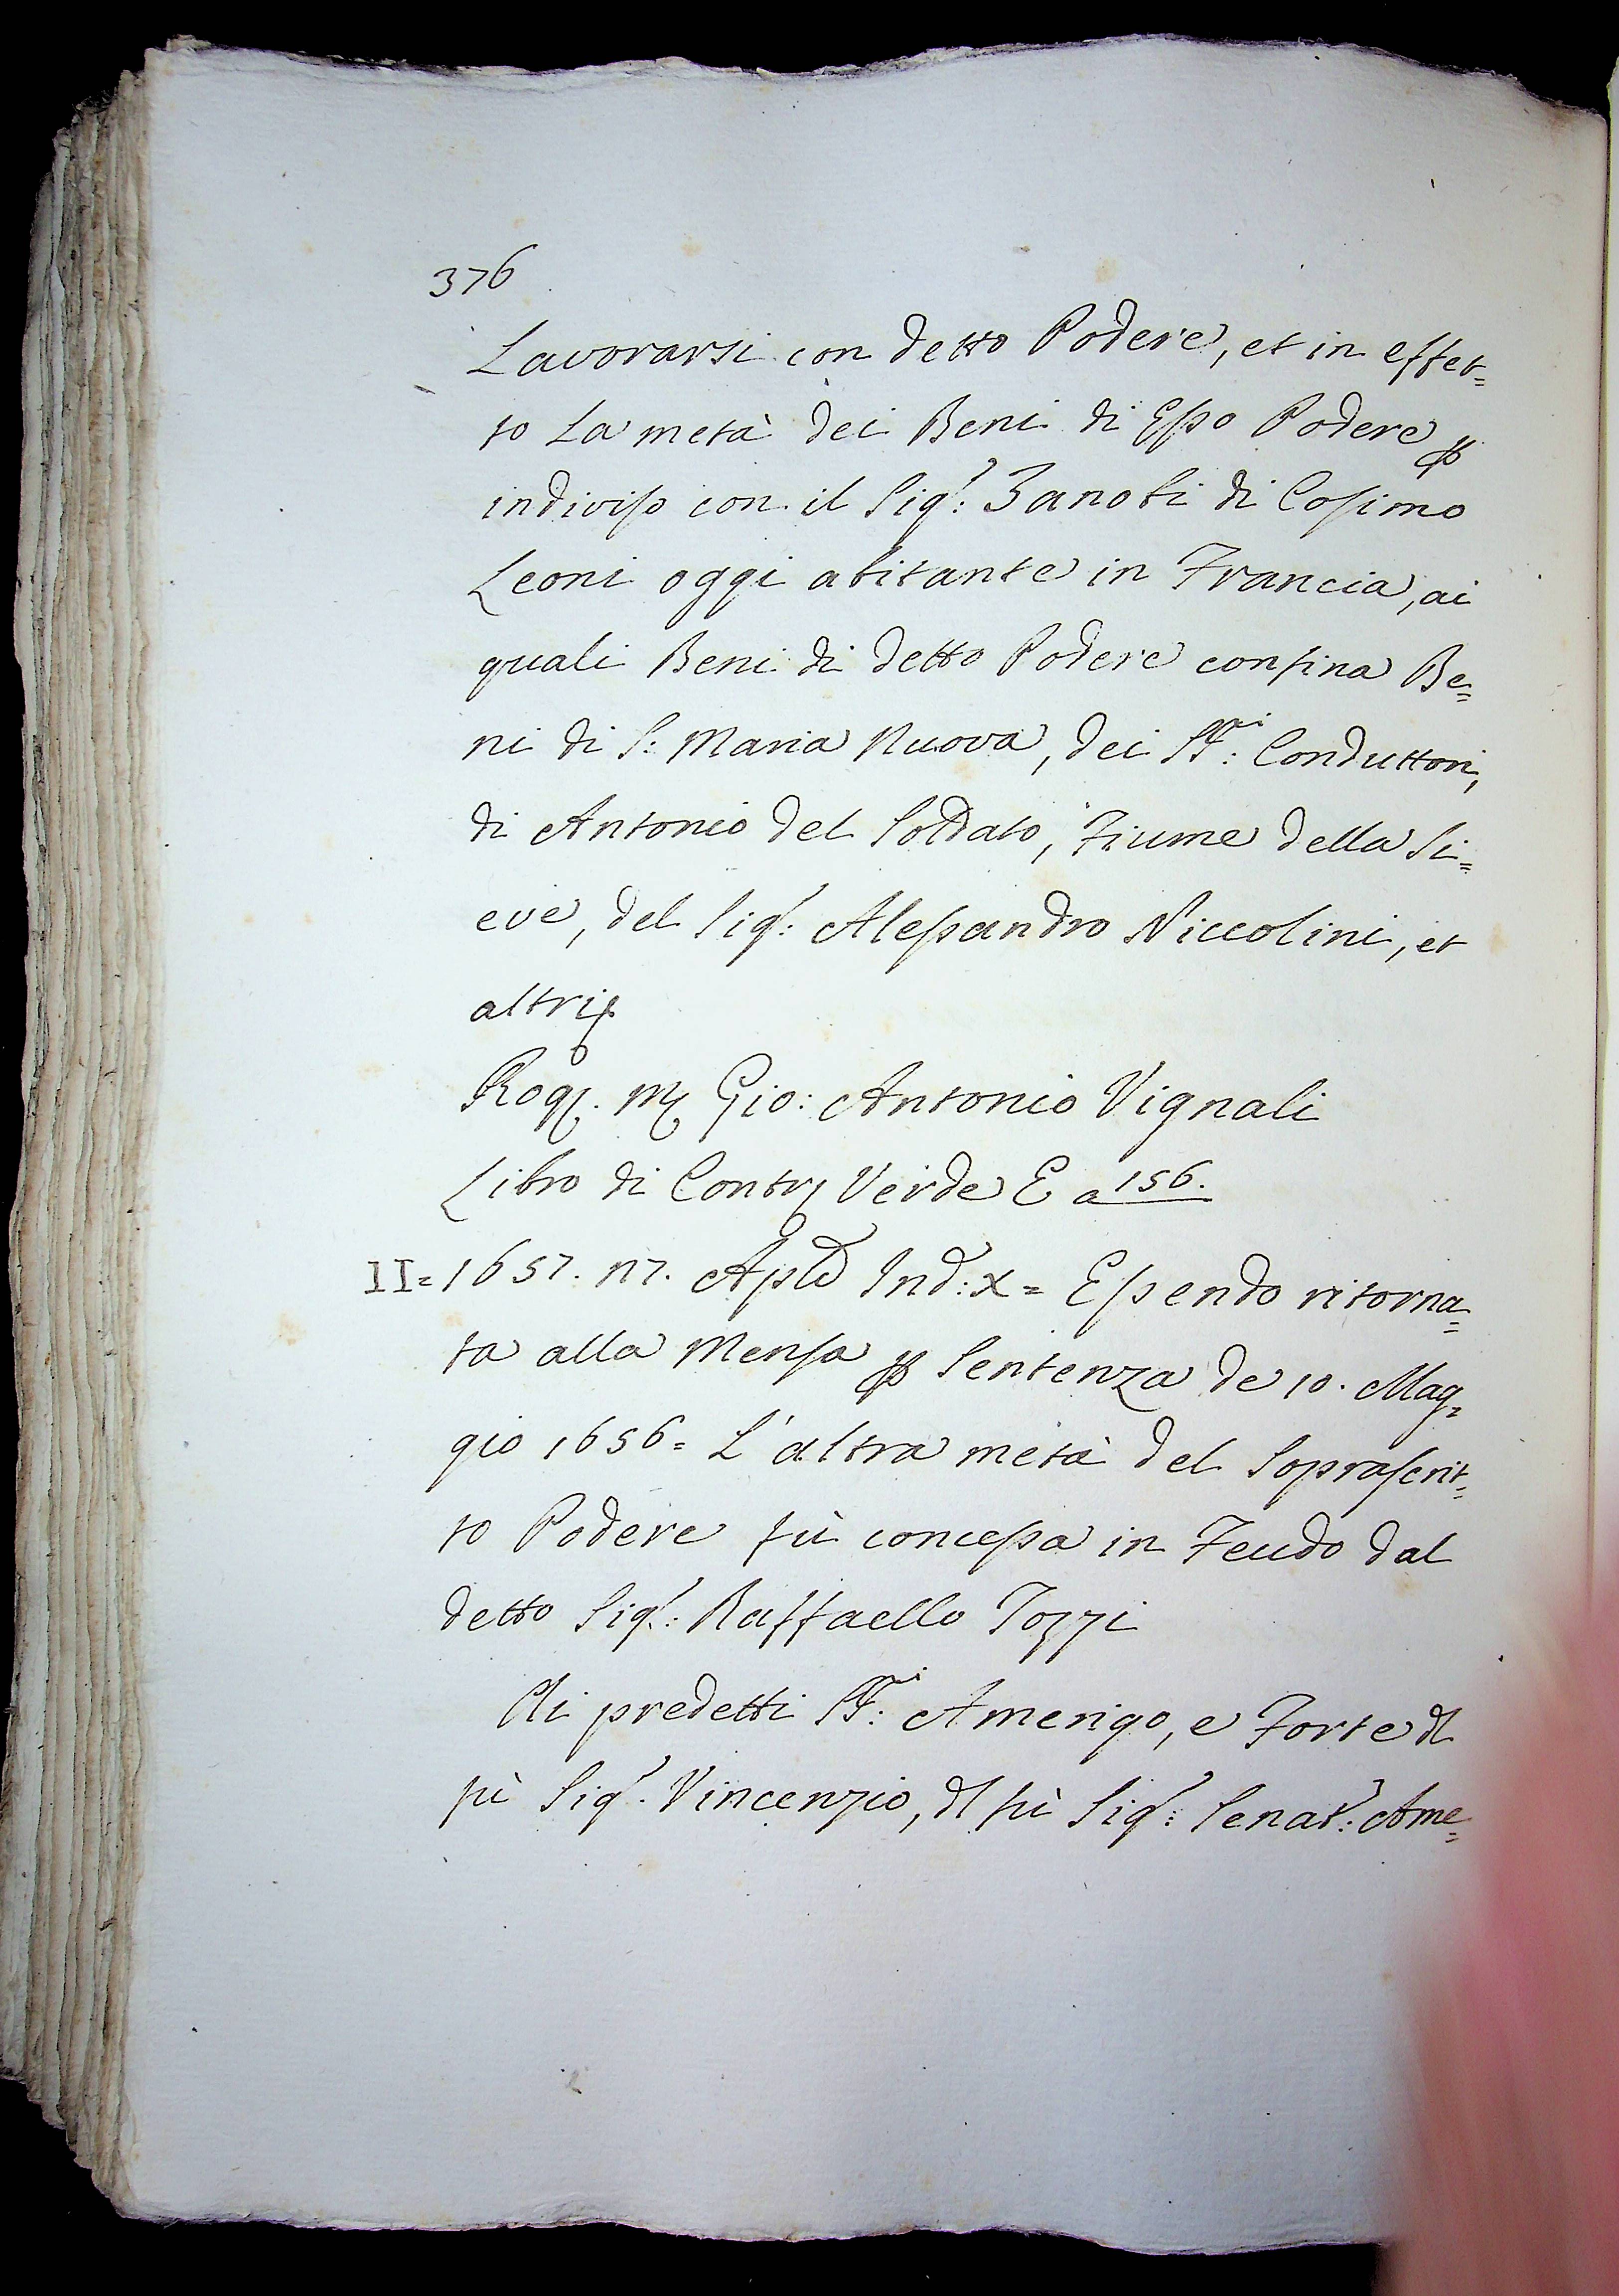 376
Lavorarsi con detto Podere, et in effet=
to La metà dei Beni di Esso Podere p
indiviso con il Sig.r: Zanobi di Cosimo
Leoni oggi abitante in Francia, ai
quali Beni di detto Podere confina Be=
ni di S: Maria Nuova, dei SS.ri: Conduttori,
di Antonio del Soldato, Fiume della Si=
eve, del Sig.r: Alessandro Niccolini, et
altri
Rog. M Gio: Antonio Vignali
Libro di Contr Verde E a 156.
II= 1657. 17. Aple Ind: X= Essendo ritorna=
ta alla Mensa p Sentenza de 10. Mag=
gio 1656= L'altra metà del Soprascrit=
to Podere fù concessa in Feudo dal
detto Sig.r: Raffaello Tozzi
Ali predetti SS.ri: Amerigo, e Forte dl
fù Sig.r. Vincenzio, dl fù Sig.r: Senat.r: Ame=